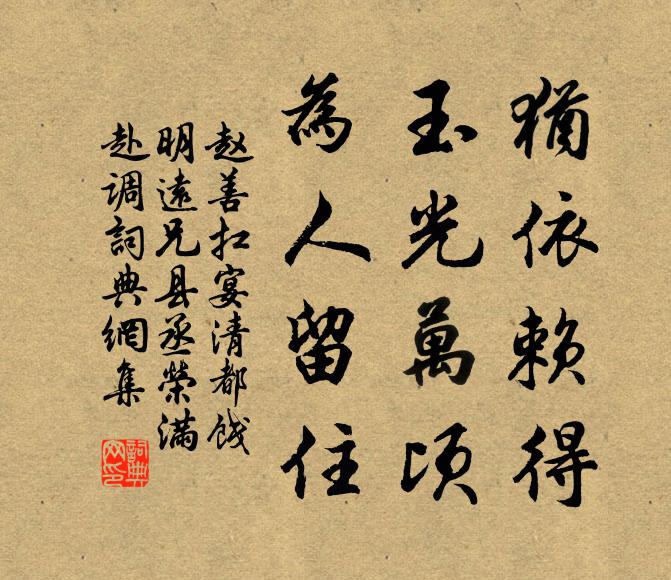 猶依賴得
玉光萬頃
為人留住
赵善扛宴清都饯
明遠兄县丞榮满
赴调詞典網集
詞典
网印